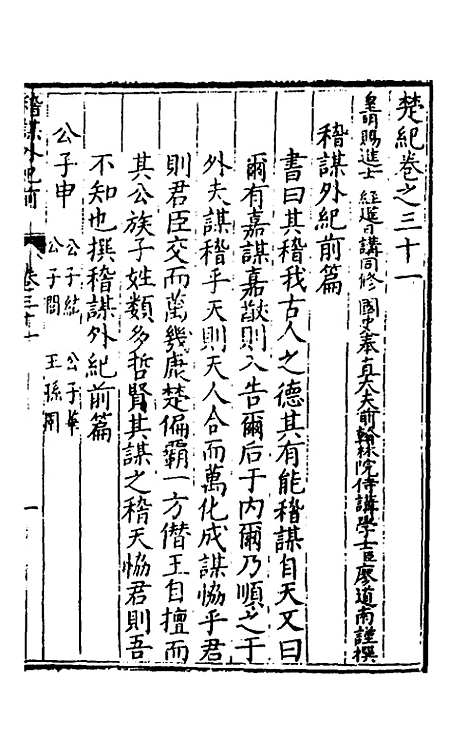 楚紀卷之三十一
皇明賜進士 經筵日講同修 國史奉直大夫前翰林院侍講學士臣廖道南謹撰
稽謀外紀前篇
書曰其稽我古人之德其有能稽謀自天又曰
爾有嘉謀嘉猷則入告爾后于內爾乃順之于
外夫謀稽乎天則天人合而萬化成謀恊乎君
則君臣交而萬幾康楚偏霸一方僭王自擅而
其公族子姓類多哲賢其謀之稽天恊君則吾
不知也撰稽謀外紀前篇
公子申 公子結 公子
公子閭 王孫圉
稽謀外紀前 卷三十一 一